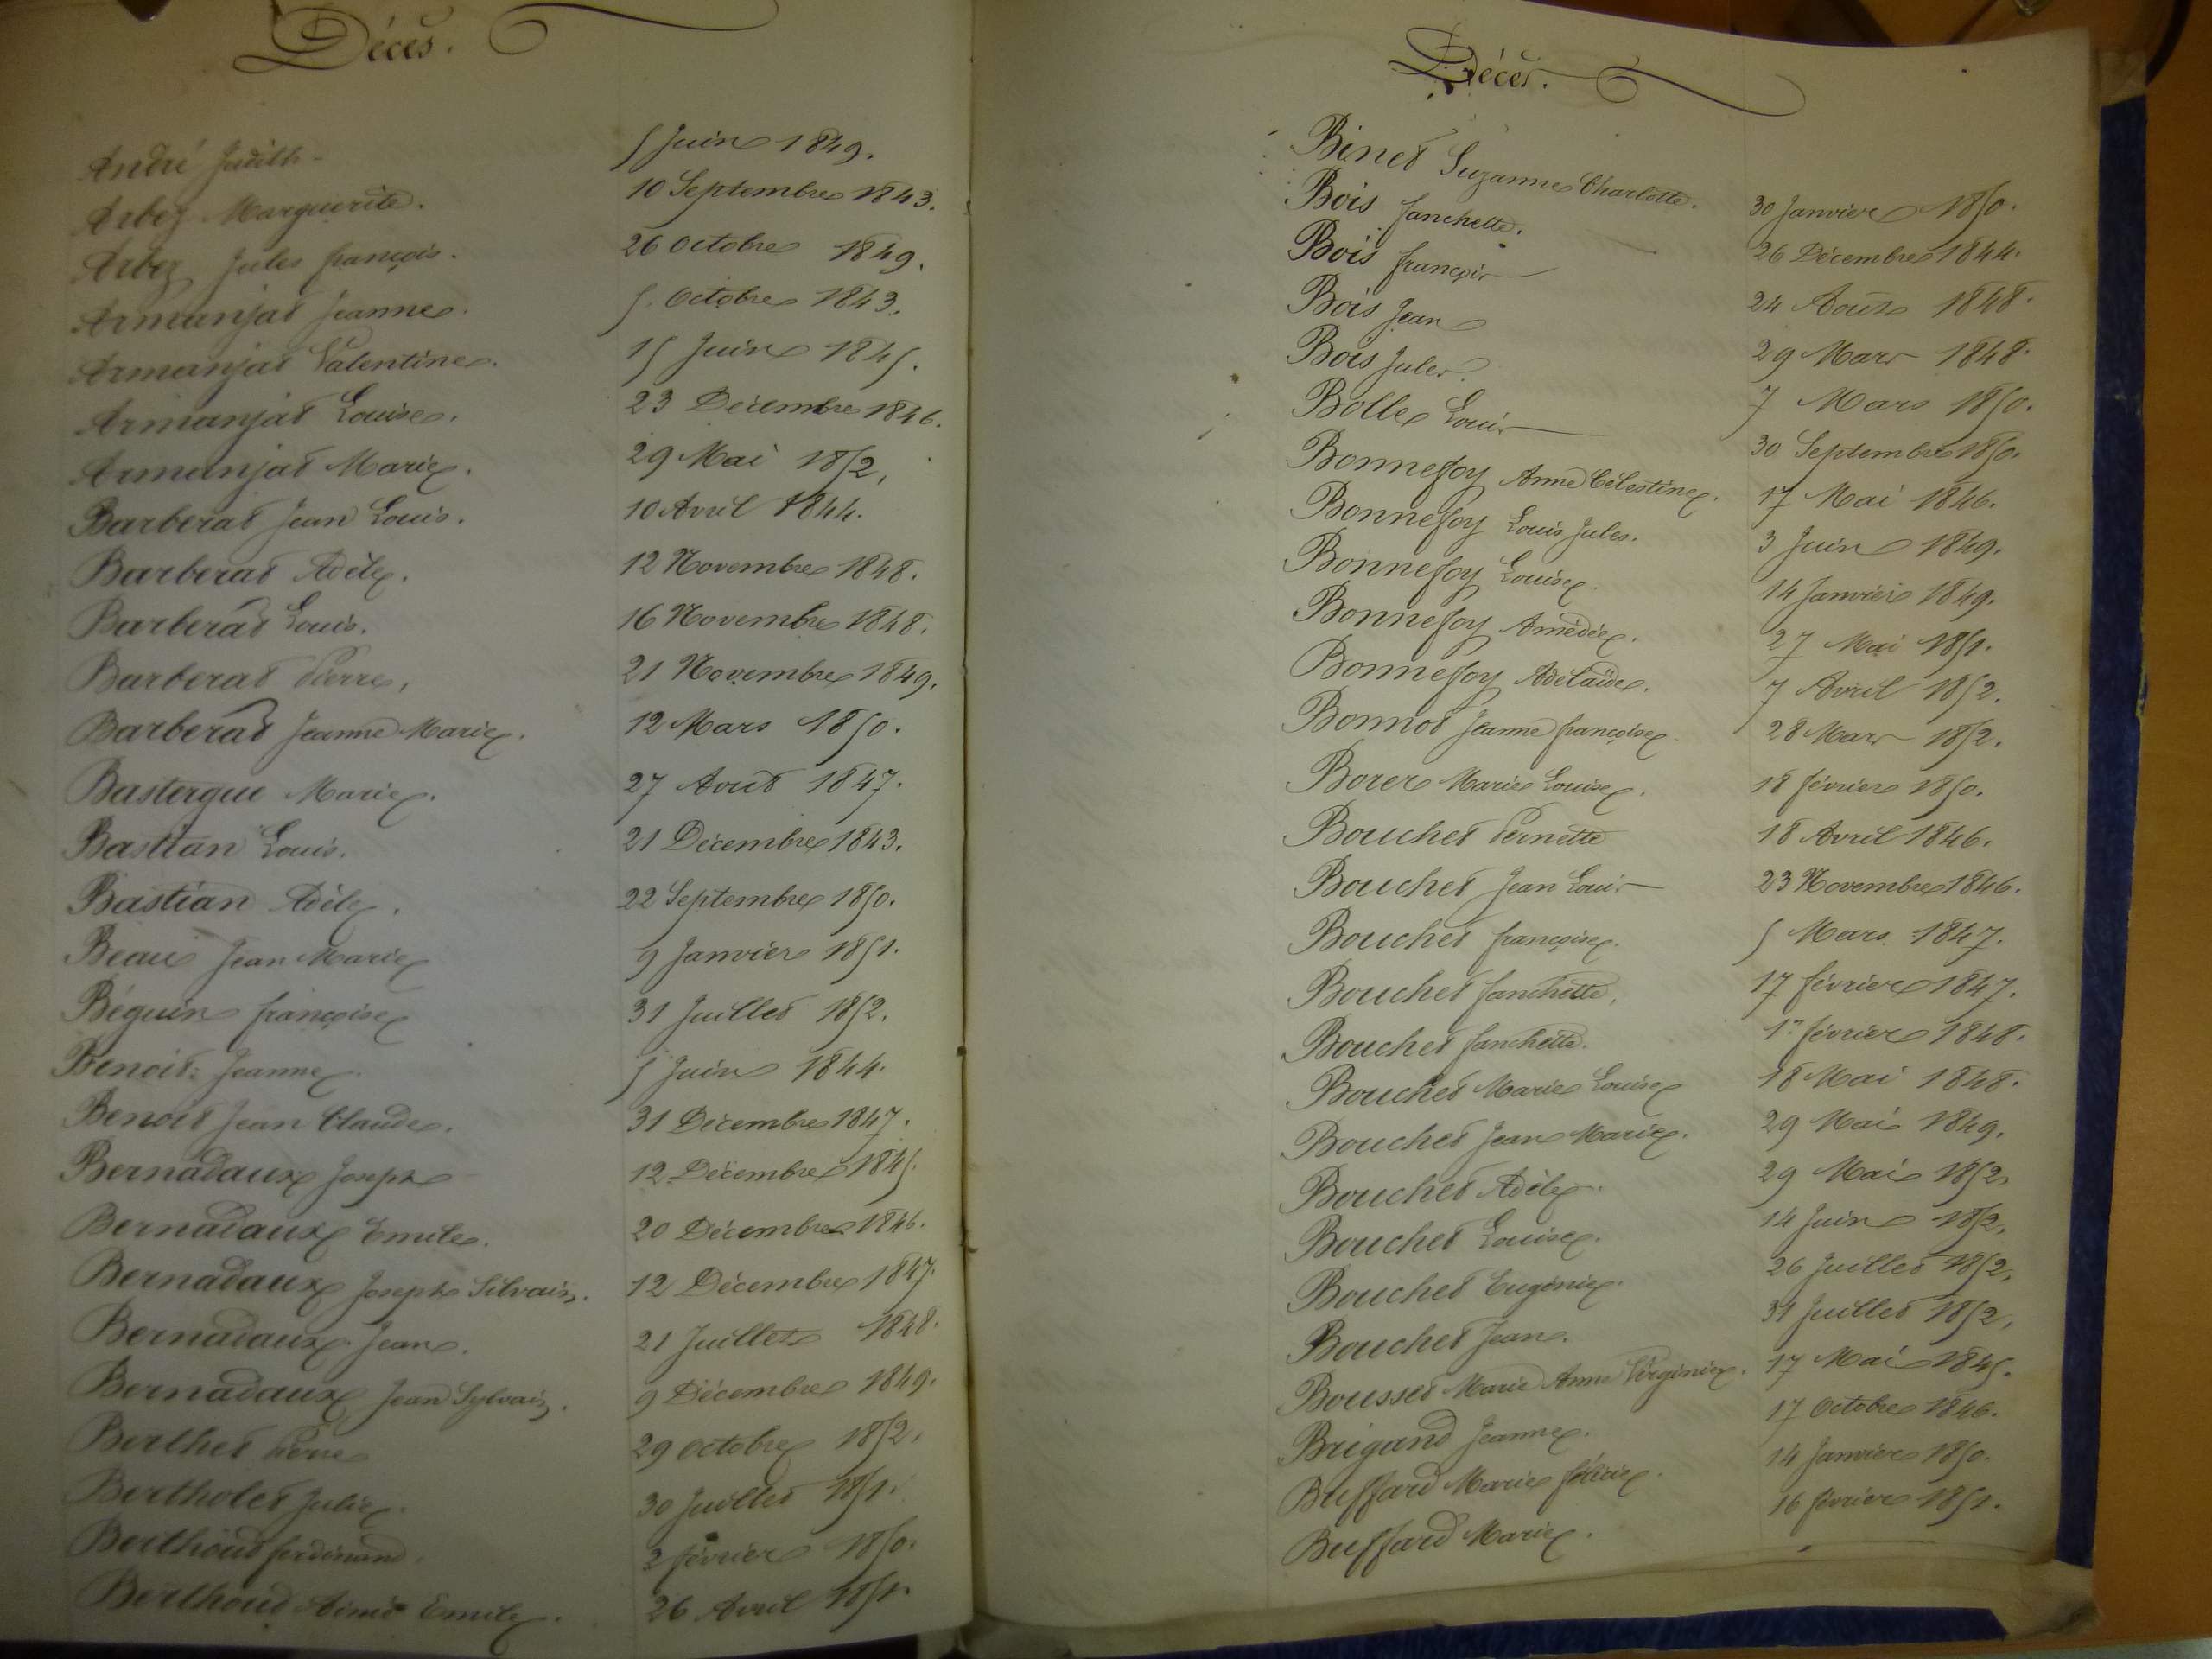 Décès.
André Judith 5 Juin 1849.
Arbez Marguerite. 10 Septembre 1843.
Arbez Jules françois. 26 Octobre 1849.
Armanjat Jeanne. 5. Octobre 1843.
Armanjat Valentine. 15 Juin 1845.
Armanjat Louise. 23 Décembre 1846.
Armanjat Marie. 29 Mai 1852.
Barberat Jean Louis. 10 Avril 1844.
Barberat Adèle. 12 Novembre 1848.
Barberat Louis. 16 Novembre 1848.
Barberat Pierre, 21 Novembre 1849.
Barberat Jeanne Marie. 12 Mars 1850.
Bastergue Marie. 27 Août 1847.
Bastian Louis. 21 Décembre 1843.
Bastian Adèle. 22 Septembre 1850.
Beau Jean Marie 9 Janvier 1851.
Béguin françoise 31 Juillet 1852.
Benoit: Jeanne. 5 Juin 1844.
Benoit Jean Claude. 31 Décembre 1847.
Bernadaux Joseph 12 Décembre 1845.
Bernadaux Emile. 20 Décembre 1846.
Bernadaux Joseph Silvain. 12 Décembre 1847.
Bernadaux Jean. 21 Juillet 1848.
Bernadaux Jean Sylvain. 9 Décembre 1849.
Berthet Pierre 29 Octobre 1852.
Bertholet Julie. 30 Juillet 1851.
Berthoud ferdinand. 2 février 1850.
Berthoud Aimé Emile. 26 Avril 1851.
Décès.
Binet Suzanne Charlotte. 30 Janvier 1850.
Bois fanchette. 26 Décembre 1844.
Bois françois 24 Août 1848.
Bois Jean 29 Mars 1848.
Bois Jules. 7 Mars 1850.
Bolle Louis 30 Septembre 1850.
Bonnefoy Anne Célestine. 17 Mai 1846.
Bonnefoy Louis Jules. 3 Juin 1849.
Bonnefoy Louise. 14 Janvier 1849.
Bonnefoy Amédée. 27 Mai 1851.
Bonnefoy Adélaïde. 7 Avril 1852.
Bonnot Jeanne françoise 28 Mars 1852.
Borer Marie Louise. 18 février 1850.
Bouchet Pernette 18 Avril 1846.
Bouchet Jean Louis 23 Novembre 1846.
Bouchet françoise. 5 Mars 1847.
Bouchet fanchette. 17 février 1847.
Bouchet fanchette. 1er février 1848.
Bouchet Marie Louise 18 Mai 1848.
Bouchet Jean Marie. 29 Mai 1849.
Bouchet Adèle. 29 Mai 1852.
Bouchet Louise. 14 Juin 1852.
Bouchet Eugénie. 26 Juillet 1852.
Bouchet Jean. 31 Juillet 1852.
Bousset Marie Anne Virginie. 17 Mai 1845.
Brigand Jeanne. 17 Octobre 1846.
Buffard Marie félicie. 14 Janvier 1850.
Buffard Marie. 16 février 1851.